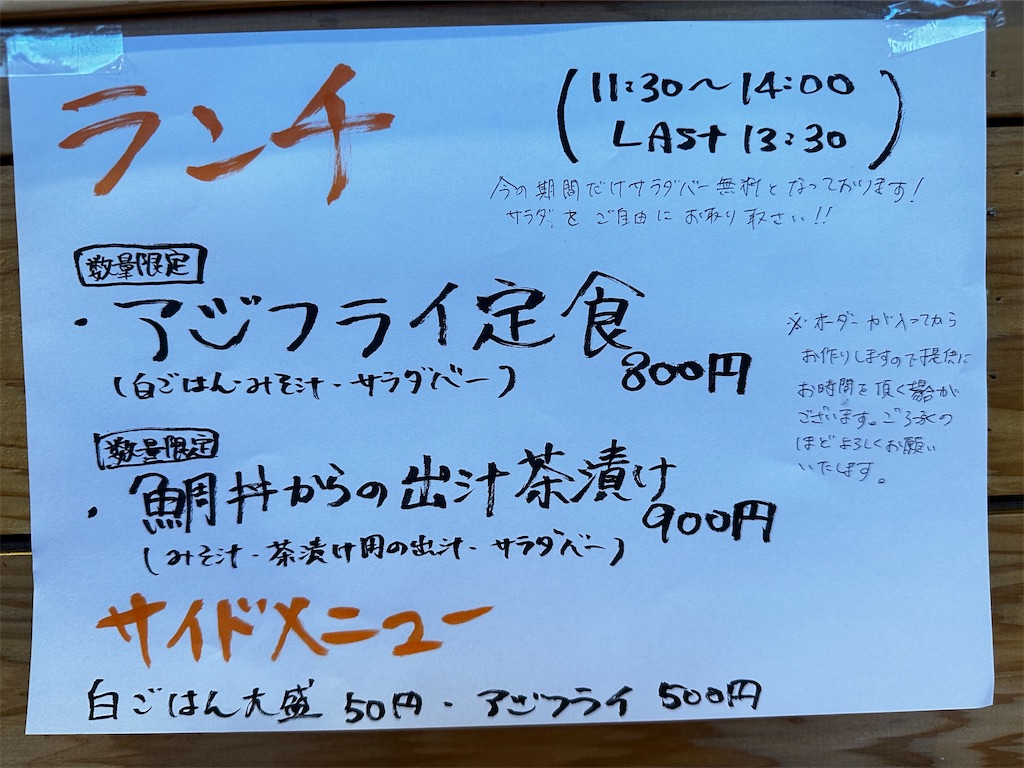 ランチ
(11:30〜14:00
LAST 13:30)
今の期間だけサラダバー無料となっております!
サラダをご自由にお取り取さい!!
数量限定
・アジフライ定食
800円
(白ごはん・みそ汁・サラダバー)
※オーダーが入ってから
お作りしますので提供に
お時間を頂く場合が
ございます。ご了承の
ほどよろしくお願い
いたします。
数量限定
・鯛丼からの出汁茶漬け
900円
(みそ汁・茶漬け用の出汁・サラダバー)
サイドメニュー
白ごはん大盛 50円・アジフライ 500円